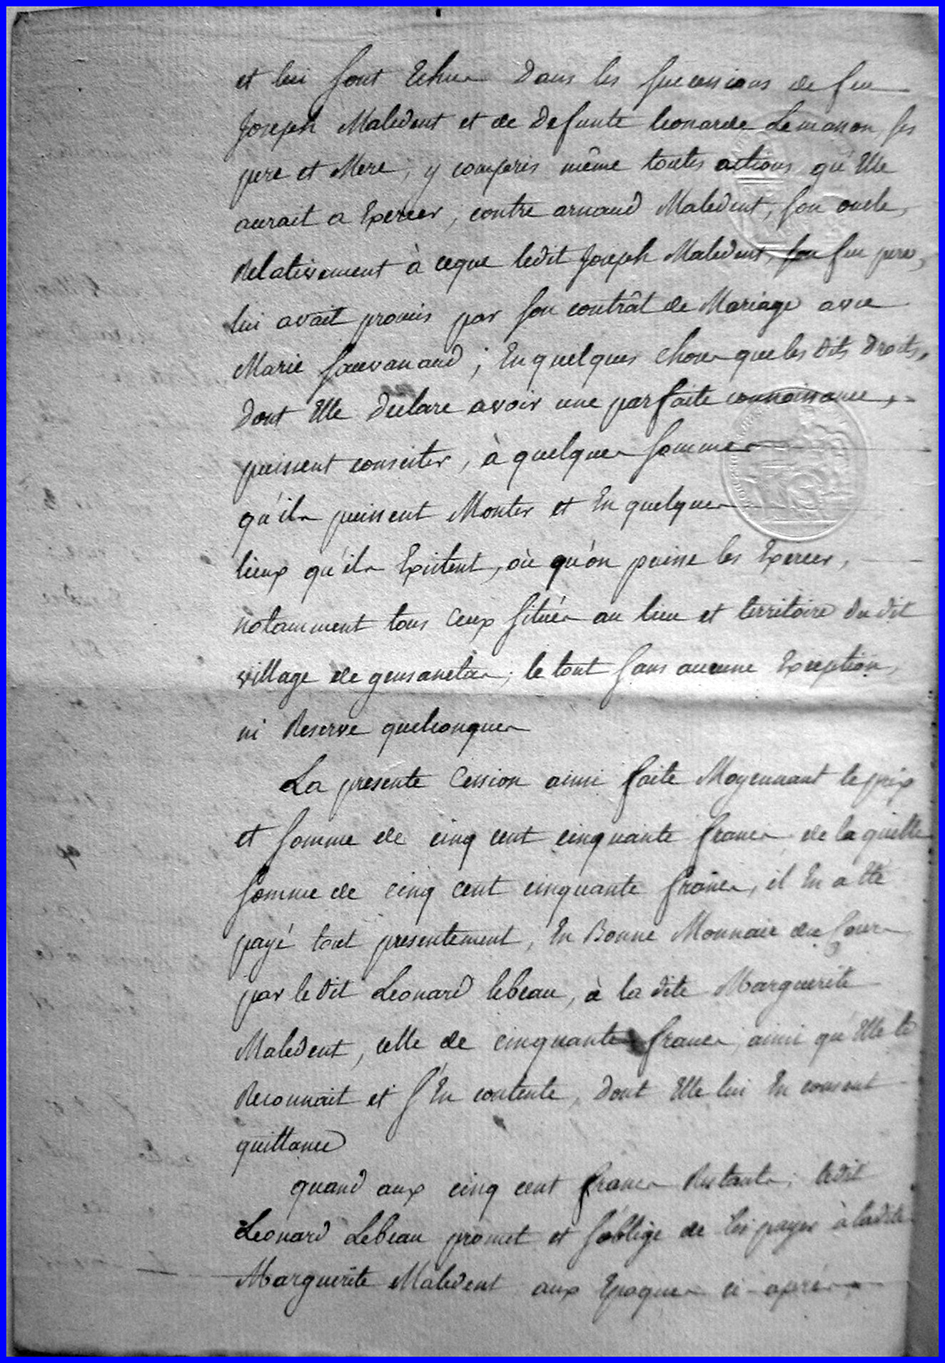 et lui sont Echus Dans les successions de feu
Joseph Maledent et de Defunte leonarde Lemasson, ses
pere et Mere, y compris même toutes actions qu'Elle
aurait a Exercer, contre arnaud Maledent, son oncle,
Relativement à ceque ledit Joseph Maledent, son feu pere,
lui avait promis par son contrât de Mariage avec
Marie Sauvanaud ; En quelques choses que les dits Droits,
dont Elle Declare avoir une parfaite connoissance,
puissent consister, à quelques sommes
qu'ils puissent Monter et En quelques
lieux qu'ils Existent, où qu'on puisse les Exercer,
notamment tous Ceux situés au lieu et territoire du dit
village de gensanelas, le tout sans aucune Exception,
ni Reserve quelconques
La presente Cession ainsi faite Moyennant le prix
et somme de cinq cent cinquante francs, de la quelle
somme de cinq cent cinquante francs, il En a Eté
payé tout presentement, En Bonne Monnaie du Cours
par le dit Leonard lebeau, à la dite Marguerite
Maledent, celle de cinquante francs, ainsi qu'Elle le
Reconnait et s'En contente, Dont Elle lui En consent
quittance
quand aux cinq cent francs Restants, ledit
Leonard Lebeau promet et s'oblige de les payer à ladite
Marguerite Maledent aux Epoques ci-après,